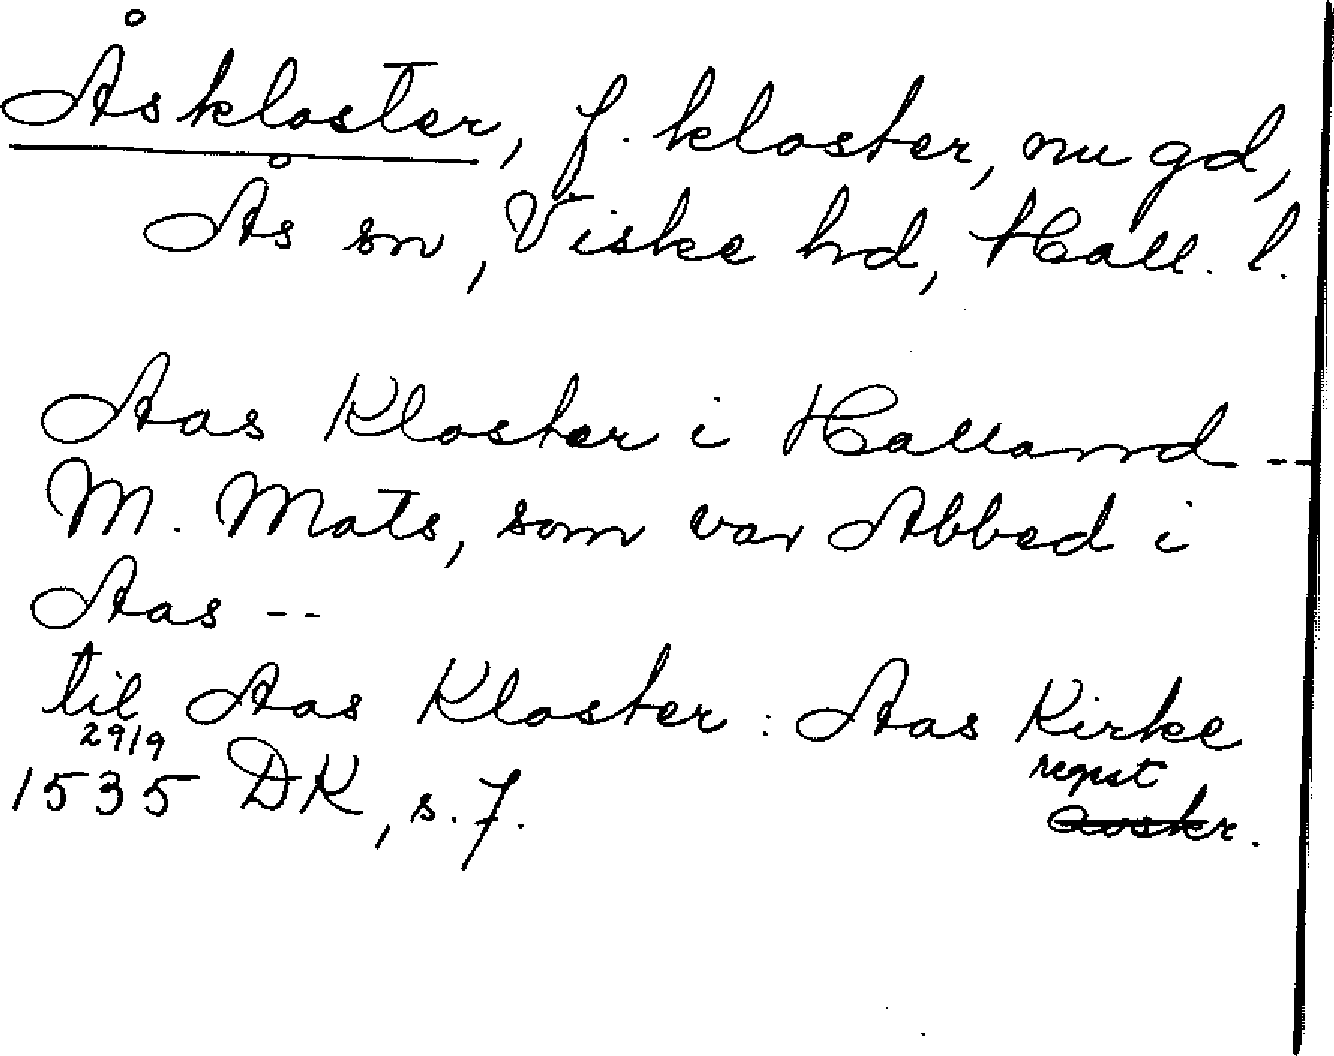 Åskloster, f. kloster, nu gd,
Ås sn, Viske hd, Hall. l.
Aas Kloster i Halland --
M. Mats, som var Abbed i
Aas --
til Aas Kloster : Aas Kirke
29/9
1535 DK, s. 7.
regist